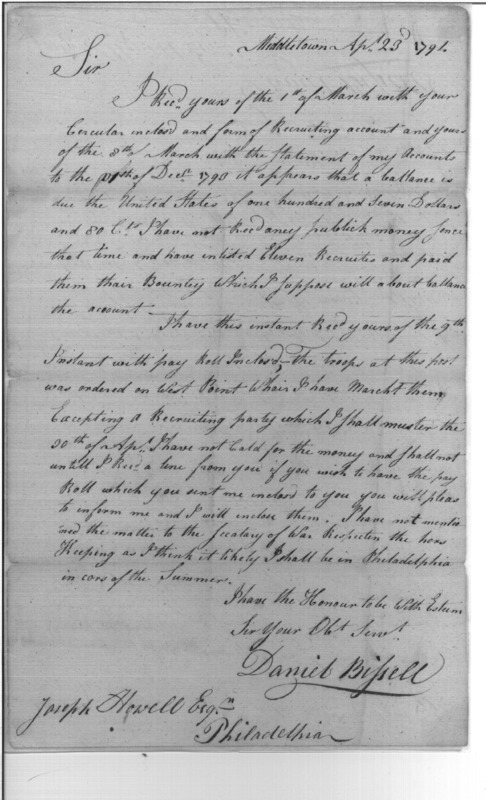 Middletown Apl 23d 1791.
Sir
I Recd yours of the 1st of March with your
Circular inclosd and form of Recruiting account and yours
of the 8th of March with the Statement of my Accounts
to the of Decr 1790 it appears that a ballance is
due the United States of one hundred and Seven Dollars
and 80 Cts I have not Recd aney publick money sence
that time and have enlisted Eleven Recruites and paid
them thair Bountey Which I suppose will about ballance
the account —
I have this instant Recd yours of the 9th
Instant with pay Roll Inclosd, The troops at this post
was ordered on West Point Whair I have Marcht them
Excepting a Recruiting party which I shall muster the
30th of Apl. I have not Cald for the money and shall not
untill I Recd a line from you if you wish to have the pay
Roll which you sent me inclosd to you you will pleas
to inform me and I will inclose them. I have not mentio
ned the matter to the Secatary of War Respectin the hors
Keeping as I think it likely I shall be in Philadelphia
in cors of the Summer.
I have the Honour to be With Esteem
Sir Your Obt Servt.
Daniel Bissell
Joseph Howell Esqr
Philadelphia